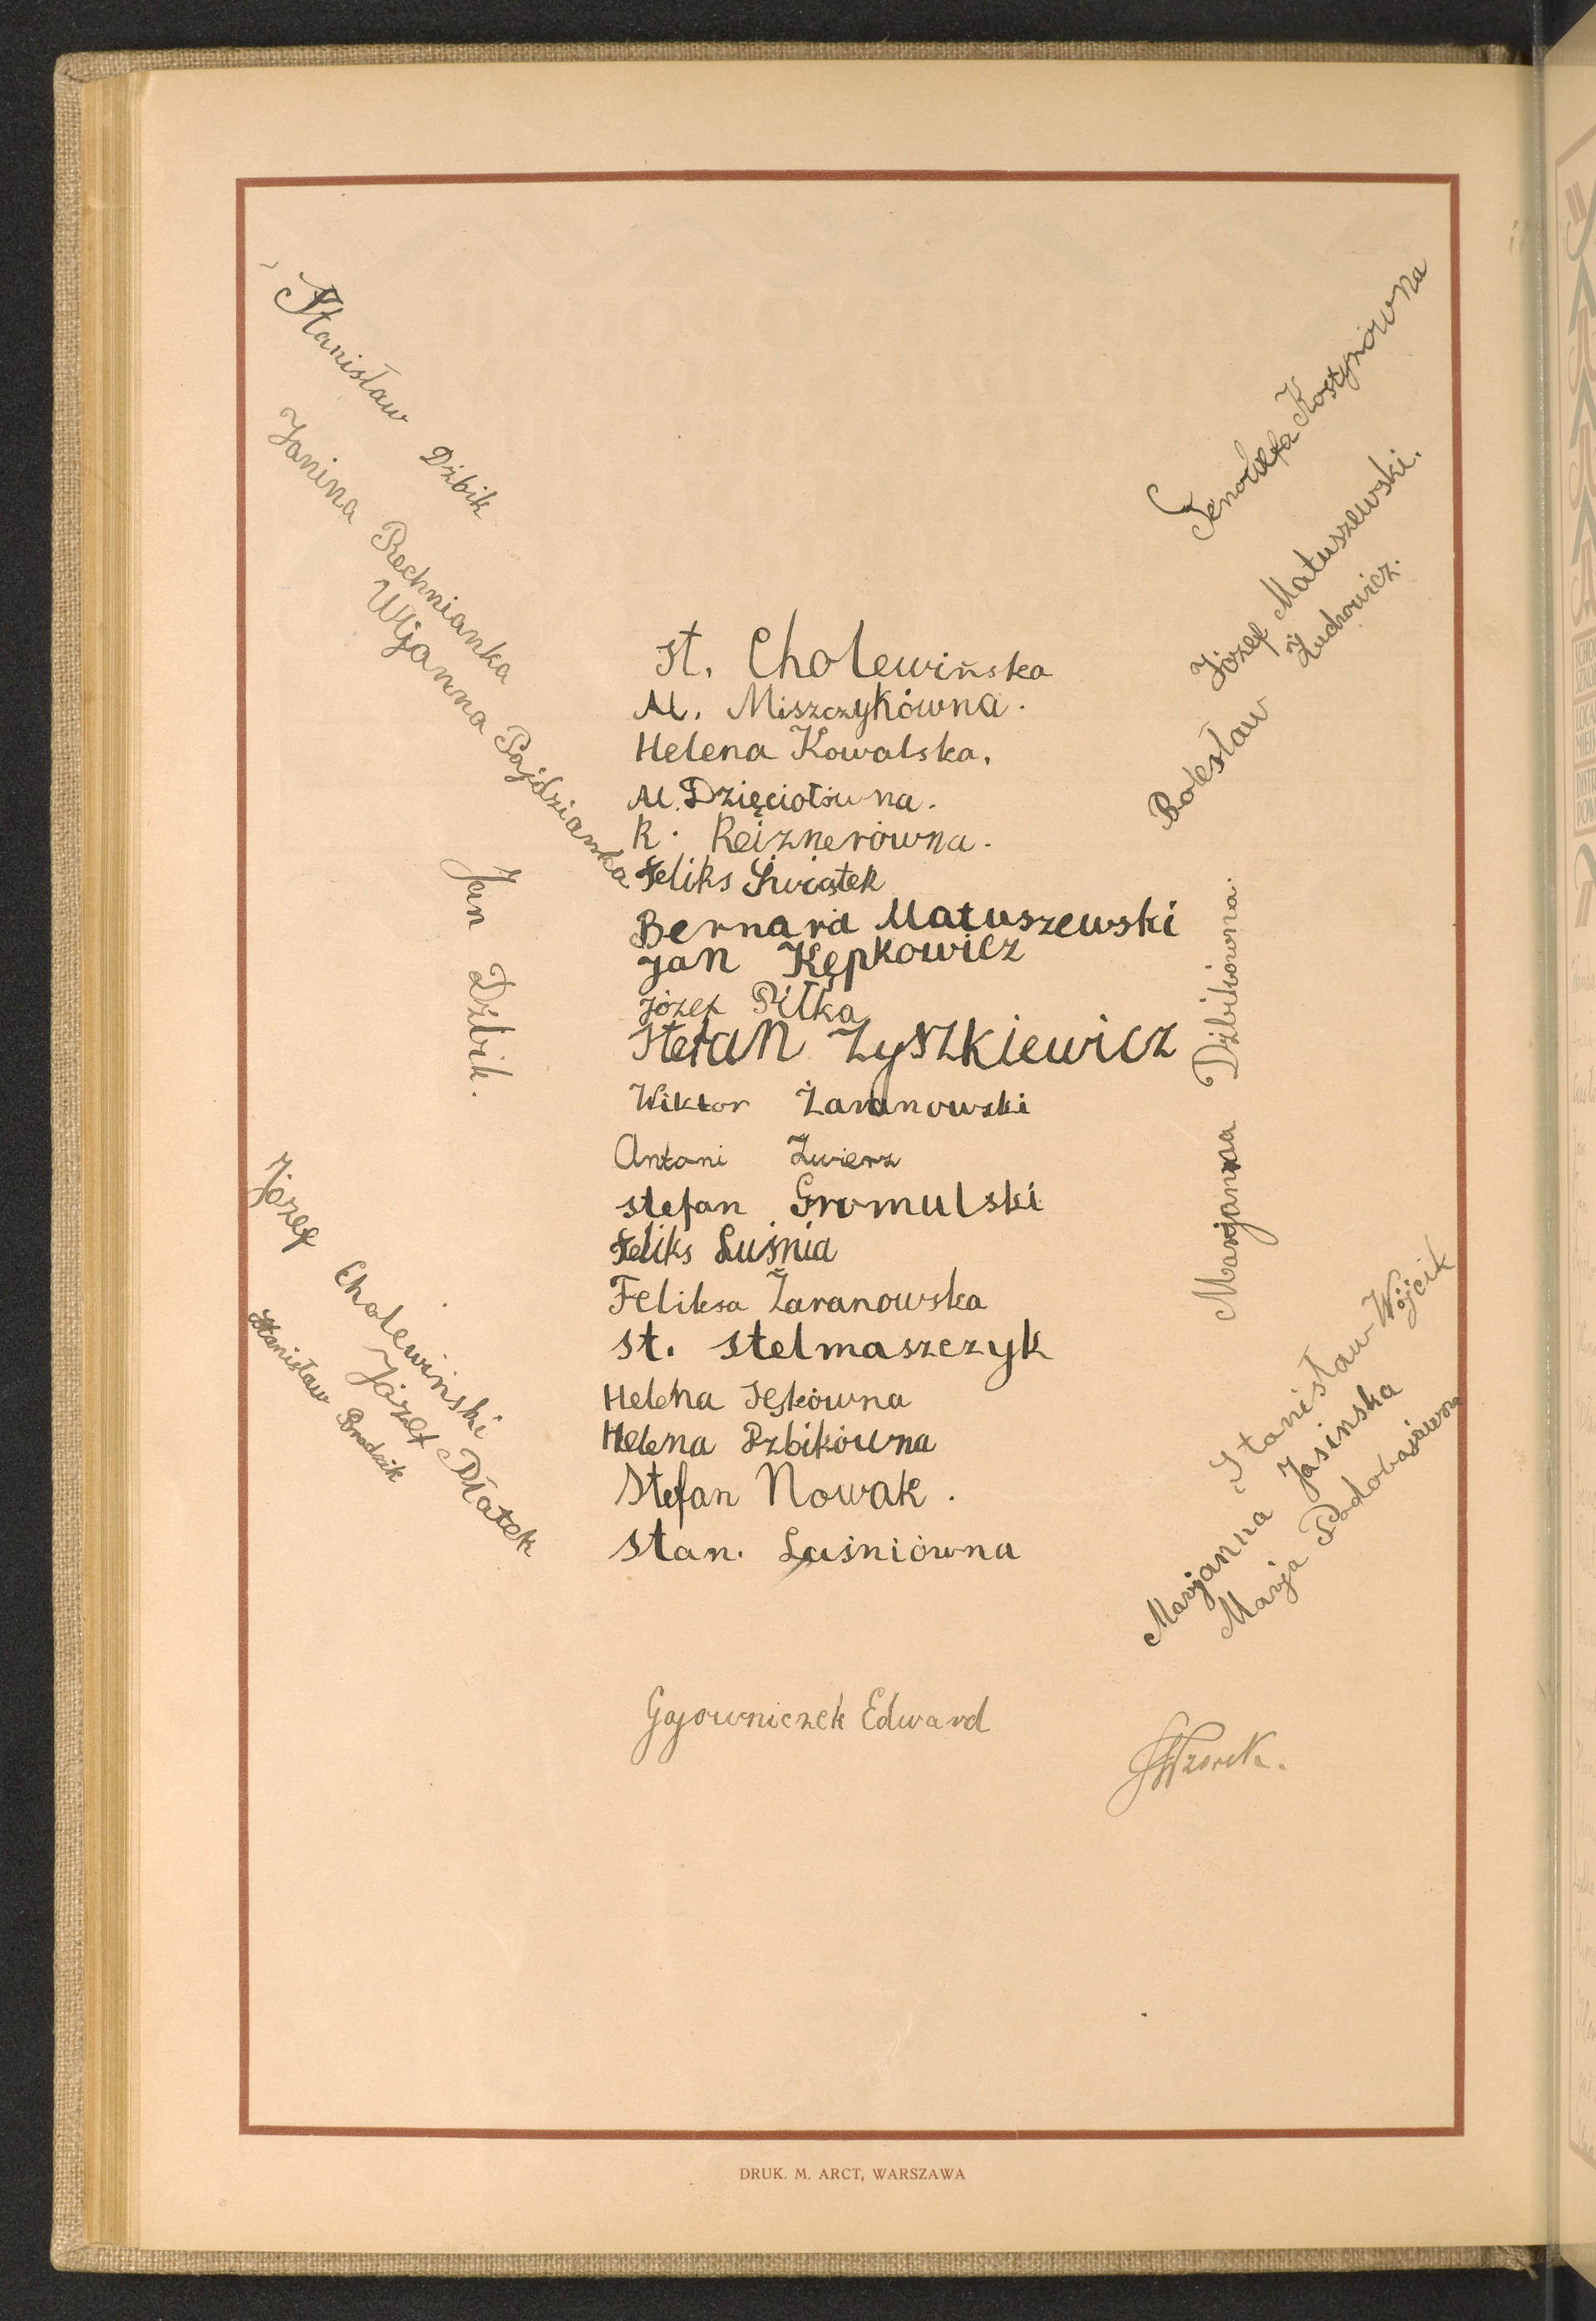 Stanisław Dźbik
Janina Rechnianka
Wijanna Pajdzianka
Jan Dźbik.
Genowefa Kostynówna
Józef Matuszewski.
Bolesław Żuchowicz.
St. Cholewińska
M. Miszczykówna.
Helena Kowalska.
M. Dzięciołówna.
R. Reiznerówna.
Feliks Świątek
Bernard Matuszewski
Jan Kępkowicz
Józef Piłka
Stefan Zyszkiewicz
Wiktor Żaranowski
Antoni Zwierz
Stefan Gromulski
Feliks Luśnia
Feliksa Żaranowska
St. Stelmaszczyk
Helena
Helena Dzbikówna
Stefan Nowak.
Stan. Luśniówna
Marjanna Dźbikówna.
Józef Cholewiński
Józef Płatek
Stanisław Brodzik
Stanisław Wójcik
Marjanna Jasinska
Marja
Gajowniczek Edward
DRUK. M. ARCT, WARSZAWA